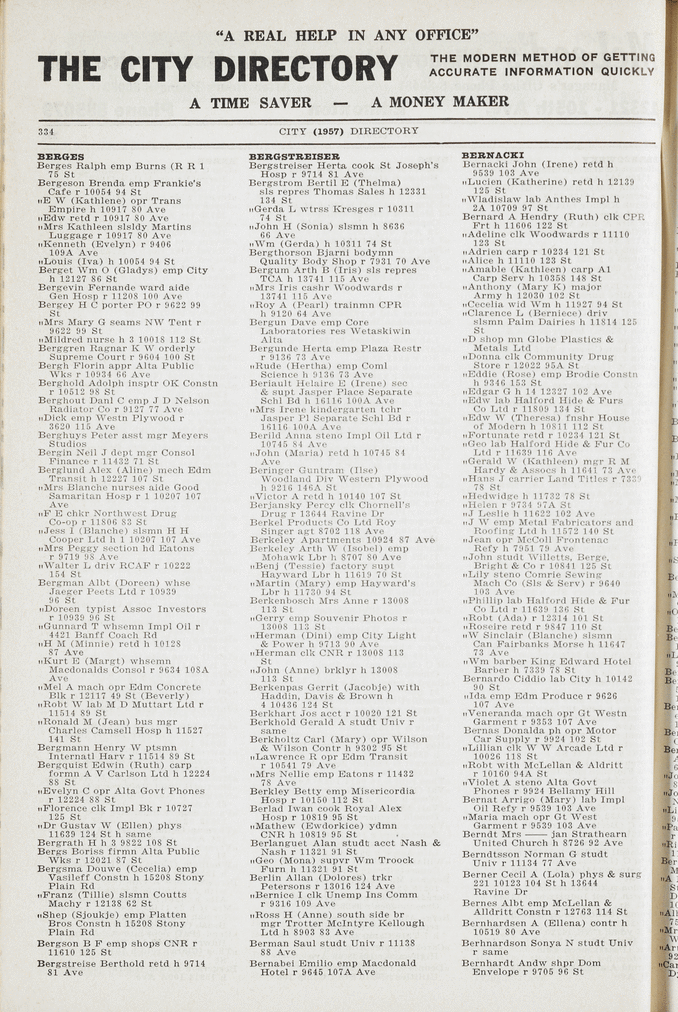 "A REAL HELP IN ANY OFFICE"
THE CITY DIRECTORY
THE MODERN METHOD OF GETTING
ACCURATE INFORMATION QUICKLY
A TIME SAVER — A MONEY MAKER
334
CITY (1957) DIRECTORY
BERGES
Berges Ralph emp Burns (R R 1
75 St
Bergeson Brenda emp Frankie's
Cafe r 10054 94 St
„E W (Kathlene) opr Trans
Empire h 10917 80 Ave
„Edw retd r 10917 80 Ave
„Mrs Kathleen slsldy Martins
Luggage r 10917 80 Ave
„Kenneth (Evelyn) r 9406
109A Ave
„Louis (Iva) h 10054 94 St
Berget Wm O (Gladys) emp City
h 12127 86 St
Bergevin Fernande ward aide
Gen Hosp r 11208 100 Ave
Bergey H C porter PO r 9622 99
St
„Mrs Mary G seams NW Tent r
9622 99 St
„Mildred nurse h 3 10018 112 St
Berggren Ragnar K W orderly
Supreme Court r 9604 100 St
Bergh Florin appr Alta Public
Wks r 10934 66 Ave
Berghold Adolph insptr OK Constn
r 10512 98 St
Berghout Danl C emp J D Nelson
Radiator Co r 9127 77 Ave
„Dick emp Westn Plywood r
3620 115 Ave
Berghuys Peter asst mgr Meyers
Studios
Bergin Neil J dept mgr Consol
Finance r 11432 71 St
Berglund Alex (Aline) mech Edm
Transit h 12227 107 St
„Mrs Blanche nurses aide Good
Samaritan Hosp r 1 10207 107
Ave
„F E chkr Northwest Drug
Co-op r 11806 83 St
„Jess I (Blanche) slsmn H H
Cooper Ltd h 1 10207 107 Ave
„Mrs Peggy section hd Eatons
r 9719 98 Ave
„Walter L driv RCAF r 10222
154 St
Bergman Albt (Doreen) whse
Jaeger Peets Ltd r 10939
96 St
„Doreen typist Assoc Investors
r 10939 96 St
„Gunnard T whsemn Impl Oil r
4421 Banff Coach Rd
„H M (Minnie) retd h 10128
87 Ave
„Kurt E (Margt) whsemn
Macdonalds Consol r 9634 108A
Ave
„Mel A mach opr Edm Concrete
Blk r 12117 49 St (Beverly)
„Robt W lab M D Muttart Ltd r
11514 89 St
„Ronald M (Jean) bus mgr
Charles Camsell Hosp h 11527
141 St
Bergmann Henry W ptsmn
Internatl Harv r 11514 89 St
Bergquist Edwin (Ruth) carp
formn A V Carlson Ltd h 12224
88 St
„Evelyn C opr Alta Govt Phones
r 12224 88 St
„Florence clk Impl Bk r 10727
125 St
„Dr Gustav W (Ellen) phys
11639 124 St h same
Bergrath H h 3 9822 108 St
Bergs Boriss firmn Alta Public
Wks r 12021 87 St
Bergsma Douwe (Cecelia) emp
Vasileff Constn h 15208 Stony
Plain Rd
„Franz (Tillie) slsmn Coutts
Machy r 12138 62 St
„Shep (Sjoukje) emp Platten
Bros Constn h 15208 Stony
Plain Rd
Bergson B F emp shops CNR r
11610 125 St
Bergstreise Berthold retd h 9714
81 Ave
BERGSTREISER
Bergstreiser Herta cook St Joseph's
Hosp r 9714 81 Ave
Bergstrom Bertil E (Thelma)
sls repres Thomas Sales h 12331
134 St
„Gerda L wtrss Kresges r 10311
74 St
„John H (Sonia) slsmn h 8636
66 Ave
„Wm (Gerda) h 10311 74 St
Bergthorson Bjarni bodymn
Quality Body Shop r 7931 70 Ave
Bergum Arth B (Iris) sls repres
TCA h 13741 115 Ave
„Mrs Iris cashr Woodwards r
13741 115 Ave
„Roy A (Pearl) trainmn CPR
h 9120 64 Ave
Bergun Dave emp Core
Laboratories res Wetaskiwin
Alta
Bergunde Herta emp Plaza Restr
r 9136 73 Ave
„Rude (Hertha) emp Coml
Science h 9136 73 Ave
Beriault Helaire E (Irene) sec
& supt Jasper Place Separate
Schl Bd h 16116 100A Ave
„Mrs Irene kindergarten tchr
Jasper Pl Separate Schl Bd r
16116 100A Ave
Berild Anna steno Impl Oil Ltd r
10745 84 Ave
„John (Maria) retd h 10745 84
Ave
Beringer Guntram (Ilse)
Woodland Div Western Plywood
h 9216 146A St
„Victor A retd h 10140 107 St
Berjansky Percy clk Chornell's
Drug r 13644 Ravine Dr
Berkel Products Co Ltd Roy
Singer agt 8702 118 Ave
Berkeley Apartments 10924 87 Ave
Berkeley Arth W (Isobel) emp
Mohawk Lbr h 8707 80 Ave
„Benj (Tessie) factory supt
Hayward Lbr h 11619 70 St
„Martin (Mary) emp Hayward's
Lbr h 11730 94 St
Berkenbosch Mrs Anne r 13008
113 St
„Gerry emp Souvenir Photos r
13008 113 St
„Herman (Dini) emp City Light
& Power h 9713 90 Ave
„Herman clk CNR r 13008 113
St
„John (Anne) brklyr h 13008
113 St
Berkenpas Gerrit (Jacobje) with
Haddin, Davis & Brown h
4 10436 124 St
Berkhart Jos acct r 10020 121 St
Berkhold Gerald A studt Univ r
same
Berkholtz Carl (Mary) opr Wilson
& Wilson Contr h 9302 95 St
„Lawrence R opr Edm Transit
r 10541 79 Ave
„Mrs Nellie emp Eatons r 11432
78 Ave
Berkley Betty emp Misericordia
Hosp r 10150 112 St
Berlad Iwan cook Royal Alex
Hosp r 10819 95 St
„Mathew (Ewdorkice) ydmn
CNR h 10819 95 St
Berlanguet Alan studt acct Nash &
Nash r 11321 91 St
„Geo (Mona) supvr Wm Troock
Furn h 11321 91 St
Berlin Allan (Dolores) trkr
Petersons r 13016 124 Ave
„Bernice I clk Unemp Ins Comm
r 9316 109 Ave
„Ross H (Anne) south side br
mgr Trotter McIntyre Kellough
Ltd h 8903 83 Ave
Berman Saul studt Univ r 11138
88 Ave
Bernabei Emilio emp Macdonald
Hotel r 9645 107A Ave
BERNACKI
Bernacki John (Irene) retd h
9539 103 Ave
„Lucien (Katherine) retd h 12139
125 St
„Wladislaw lab Anthes Impl h
2A 10709 97 St
Bernard A Hendry (Ruth) clk CPR
Frt h 11606 122 St
„Adeline clk Woodwards r 11110
123 St
„Adrien carp r 10234 121 St
„Alice h 11110 123 St
„Amable (Kathleen) carp A1
Carp Serv h 10358 148 St
„Anthony (Mary K) major
Army h 12030 102 St
„Cecelia wid Wm h 11927 94 St
„Clarence L (Berniece) driv
slsmn Palm Dairies h 11814 125
St
„D shop mn Globe Plastics &
Metals Ltd
„Donna clk Community Drug
Store r 12022 95A St
„Eddie (Rose) emp Brodie Constn
h 9346 153 St
„Edgar G h 14 12327 102 Ave
„Edw lab Halford Hide & Furs
Co Ltd r 11809 134 St
„Edw W (Theresa) fnshr House
of Modern h 10811 112 St
„Fortunate retd r 10234 121 St
„Geo lab Halford Hide & Fur Co
Ltd r 11639 116 Ave
„Gerald W (Kathleen) mgr R M
Hardy & Assocs h 11641 73 Ave
„Hans J carrier Land Titles r 7339
78 St
„Hedwidge h 11732 78 St
„Helen r 9734 97A St
„J Leslie h 11622 102 Ave
„J W emp Metal Fabricators and
Roofing Ltd h 11572 140 St
„Jean opr McColl Frontenac
Refy h 7951 79 Ave
„John studt Willetts, Berge,
Bright & Co r 10841 125 St
„Lily steno Comrie Sewing
Mach Co (Sls & Serv) r 9640
103 Ave
„Phillip lab Halford Hide & Fur
Co Ltd r 11639 136 St
„Robt (Ada) r 12314 101 St
„Roseire retd r 9847 110 St
„W Sinclair (Blanche) slsmn
Can Fairbanks Morse h 11647
73 Ave
„Wm barber King Edward Hotel
Barber h 7339 78 St
Bernardo Ciddio lab City h 10142
90 St
„Ida emp Edm Produce r 9626
107 Ave
„Veneranda mach opr Gt Westn
Garment r 9353 107 Ave
Bernas Donalda ph opr Motor
Car Supply r 9924 102 St
„Lillian clk W W Arcade Ltd r
10026 118 St
„Robt with McLellan & Aldritt
r 10160 94A St
„Violet A steno Alta Govt
Phones r 9924 Bellamy Hill
Bernat Arrigo (Mary) lab Impl
Oil Refy r 9539 103 Ave
„Maria mach opr Gt West
Garment r 9539 103 Ave
Berndt Mrs —— jan Strathearn
United Church h 8726 92 Ave
Berndtsson Norman G studt
Univ r 11134 77 Ave
Berner Cecil A (Lola) phys & surg
221 10123 104 St h 13644
Ravine Dr
Bernes Albt emp McLellan &
Alldritt Constn r 12763 114 St
Bernhardsen A (Ellena) contr h
10519 80 Ave
Berhnardson Sonya N studt Univ
r same
Bernhardt Andw shpr Dom
Envelope r 9705 96 St